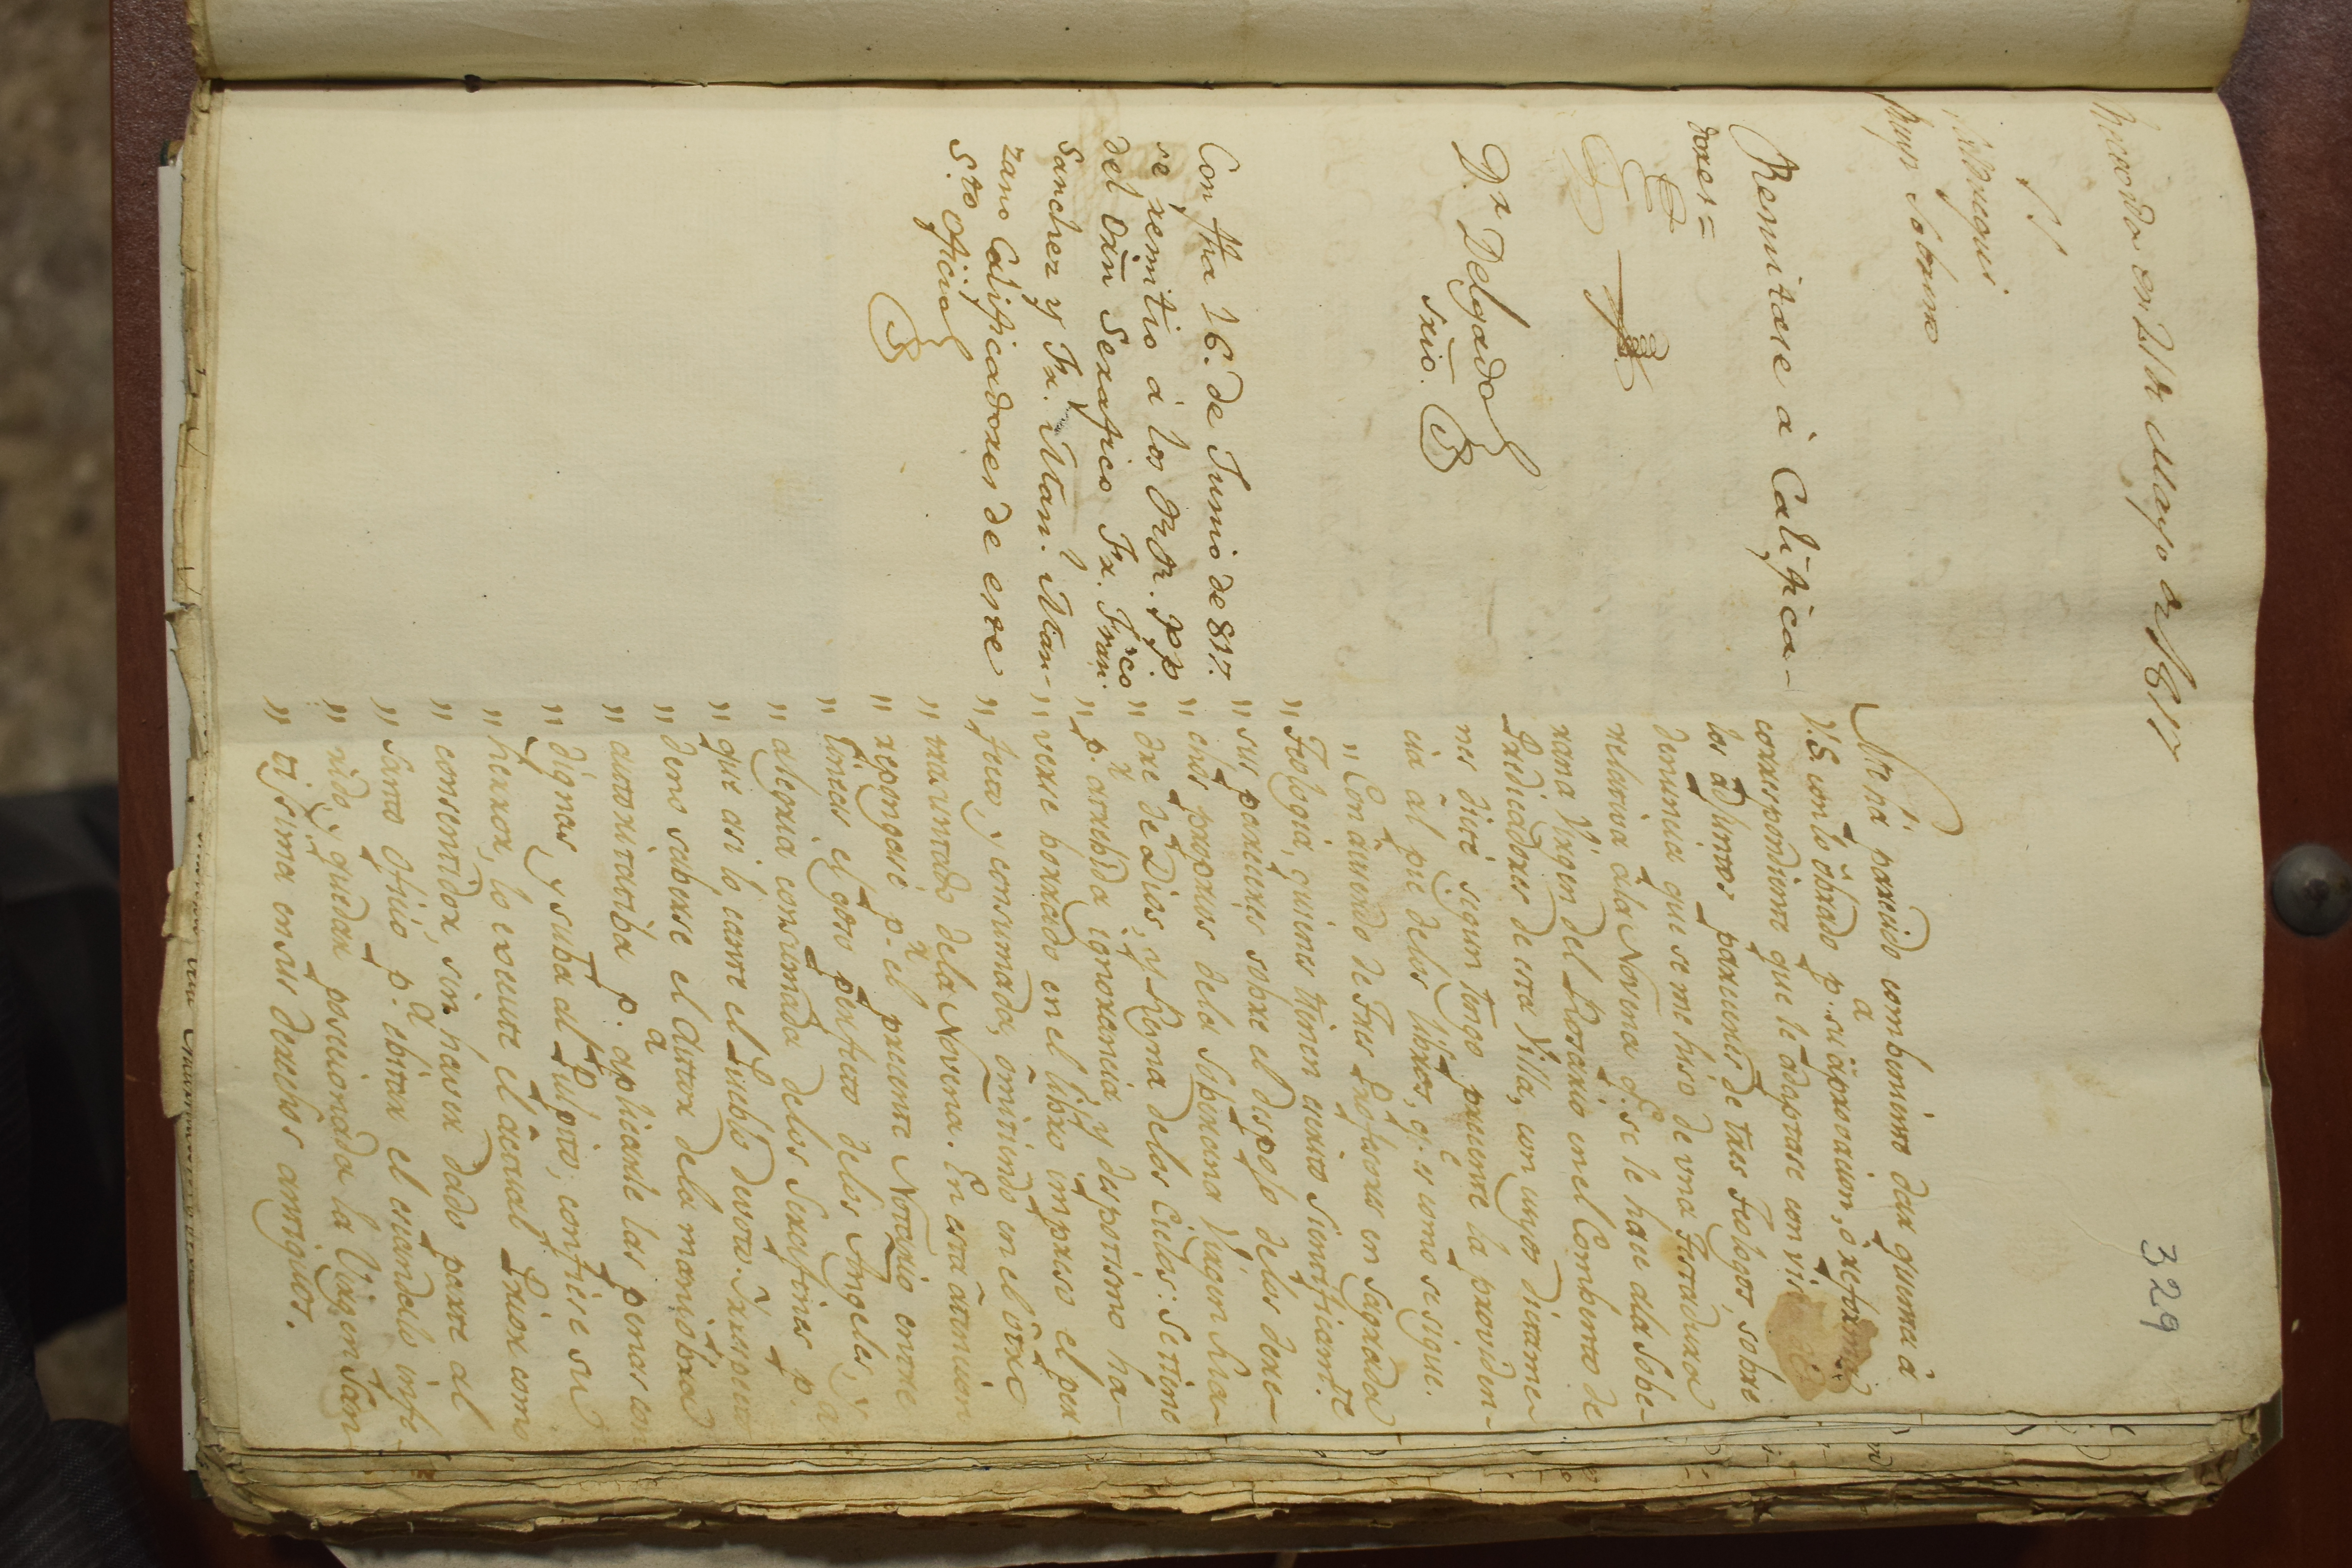 329
en 21 de Mayo de 1817
Sobrino
Remitase à Califica-
dores =
D.r Delgado
Srio.
Con fha 16. de Junio de 817.
se remitio á los RR. PP
del Orn Serafico Fr. Fran.co
Sanchez y Fr. Man.l Man-
zano Calificadores de este
S.to Oficio
Me há parecido combenirte dar quenta à
V.S. con lo obrado p.a su aprovacion, o reforma
correspondiente que le adaptare
los adjuntos pareceres de tres Teologos sobre
denuncia que se me hiso de una
relativa ala Novena q.e se le hace ala Sobe-
rana Virgen del Rosario en el Combento de
Predicadores de esta Villa, con cuyos dictame-
nes dicté segun tengo presente la providen-
cia al pie delos libros, q.e es como se sigue.
" Con acuerdo de tres Profesores en Sagrada
" Teologia, quienes tienen escrito
" sus pareceres sobre el despojo delos dere-
" chos propios dela Soberana Virgen Ma-
" dre de Dios, y Reyna delos Cielos: Se tiene
" p.r atrubida ignorencia y despotismo ha-
" verse borrado en el libro impreso el per-
" fecto, y consumada, omitiendo en el otro
" manuntado dela Novena. En esta atencion
" repongase p.r el presente Notario entre
" lineas el gozo perfecto delos Angeles, y
" alegria consumada delos Serafines p.a
" que asi lo cante el Pueblo devoto.
" dero saberse el Auttor dela maniobra
" autoritatiba p.a aplicarle las penas con
" dignas, y suba al Pulpito, confiese su
" herror, lo execute el actual Prior como
" consentidor, sin haver dado parte al
" Santo Oficio p.a ebitar el escandalo infe-
" rido, y quedar posecionada la Virgen San-
" tisima en sus derechos antiguos.